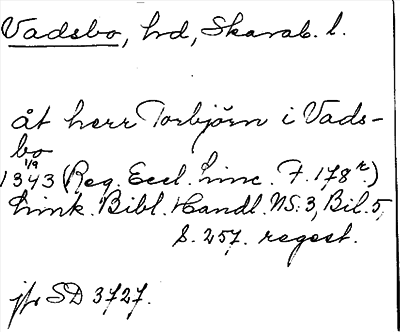 Vadsbo, hd, Skarab. l.
åt herr Torbjörn i Vads-
bo
1/9
1343 (Reg. Eccl. Linc. F. 178 r.)
Link. Bibl. Handl. NS: 3, Bil. 5,
S. 257. regest.
jfr SD 3727.